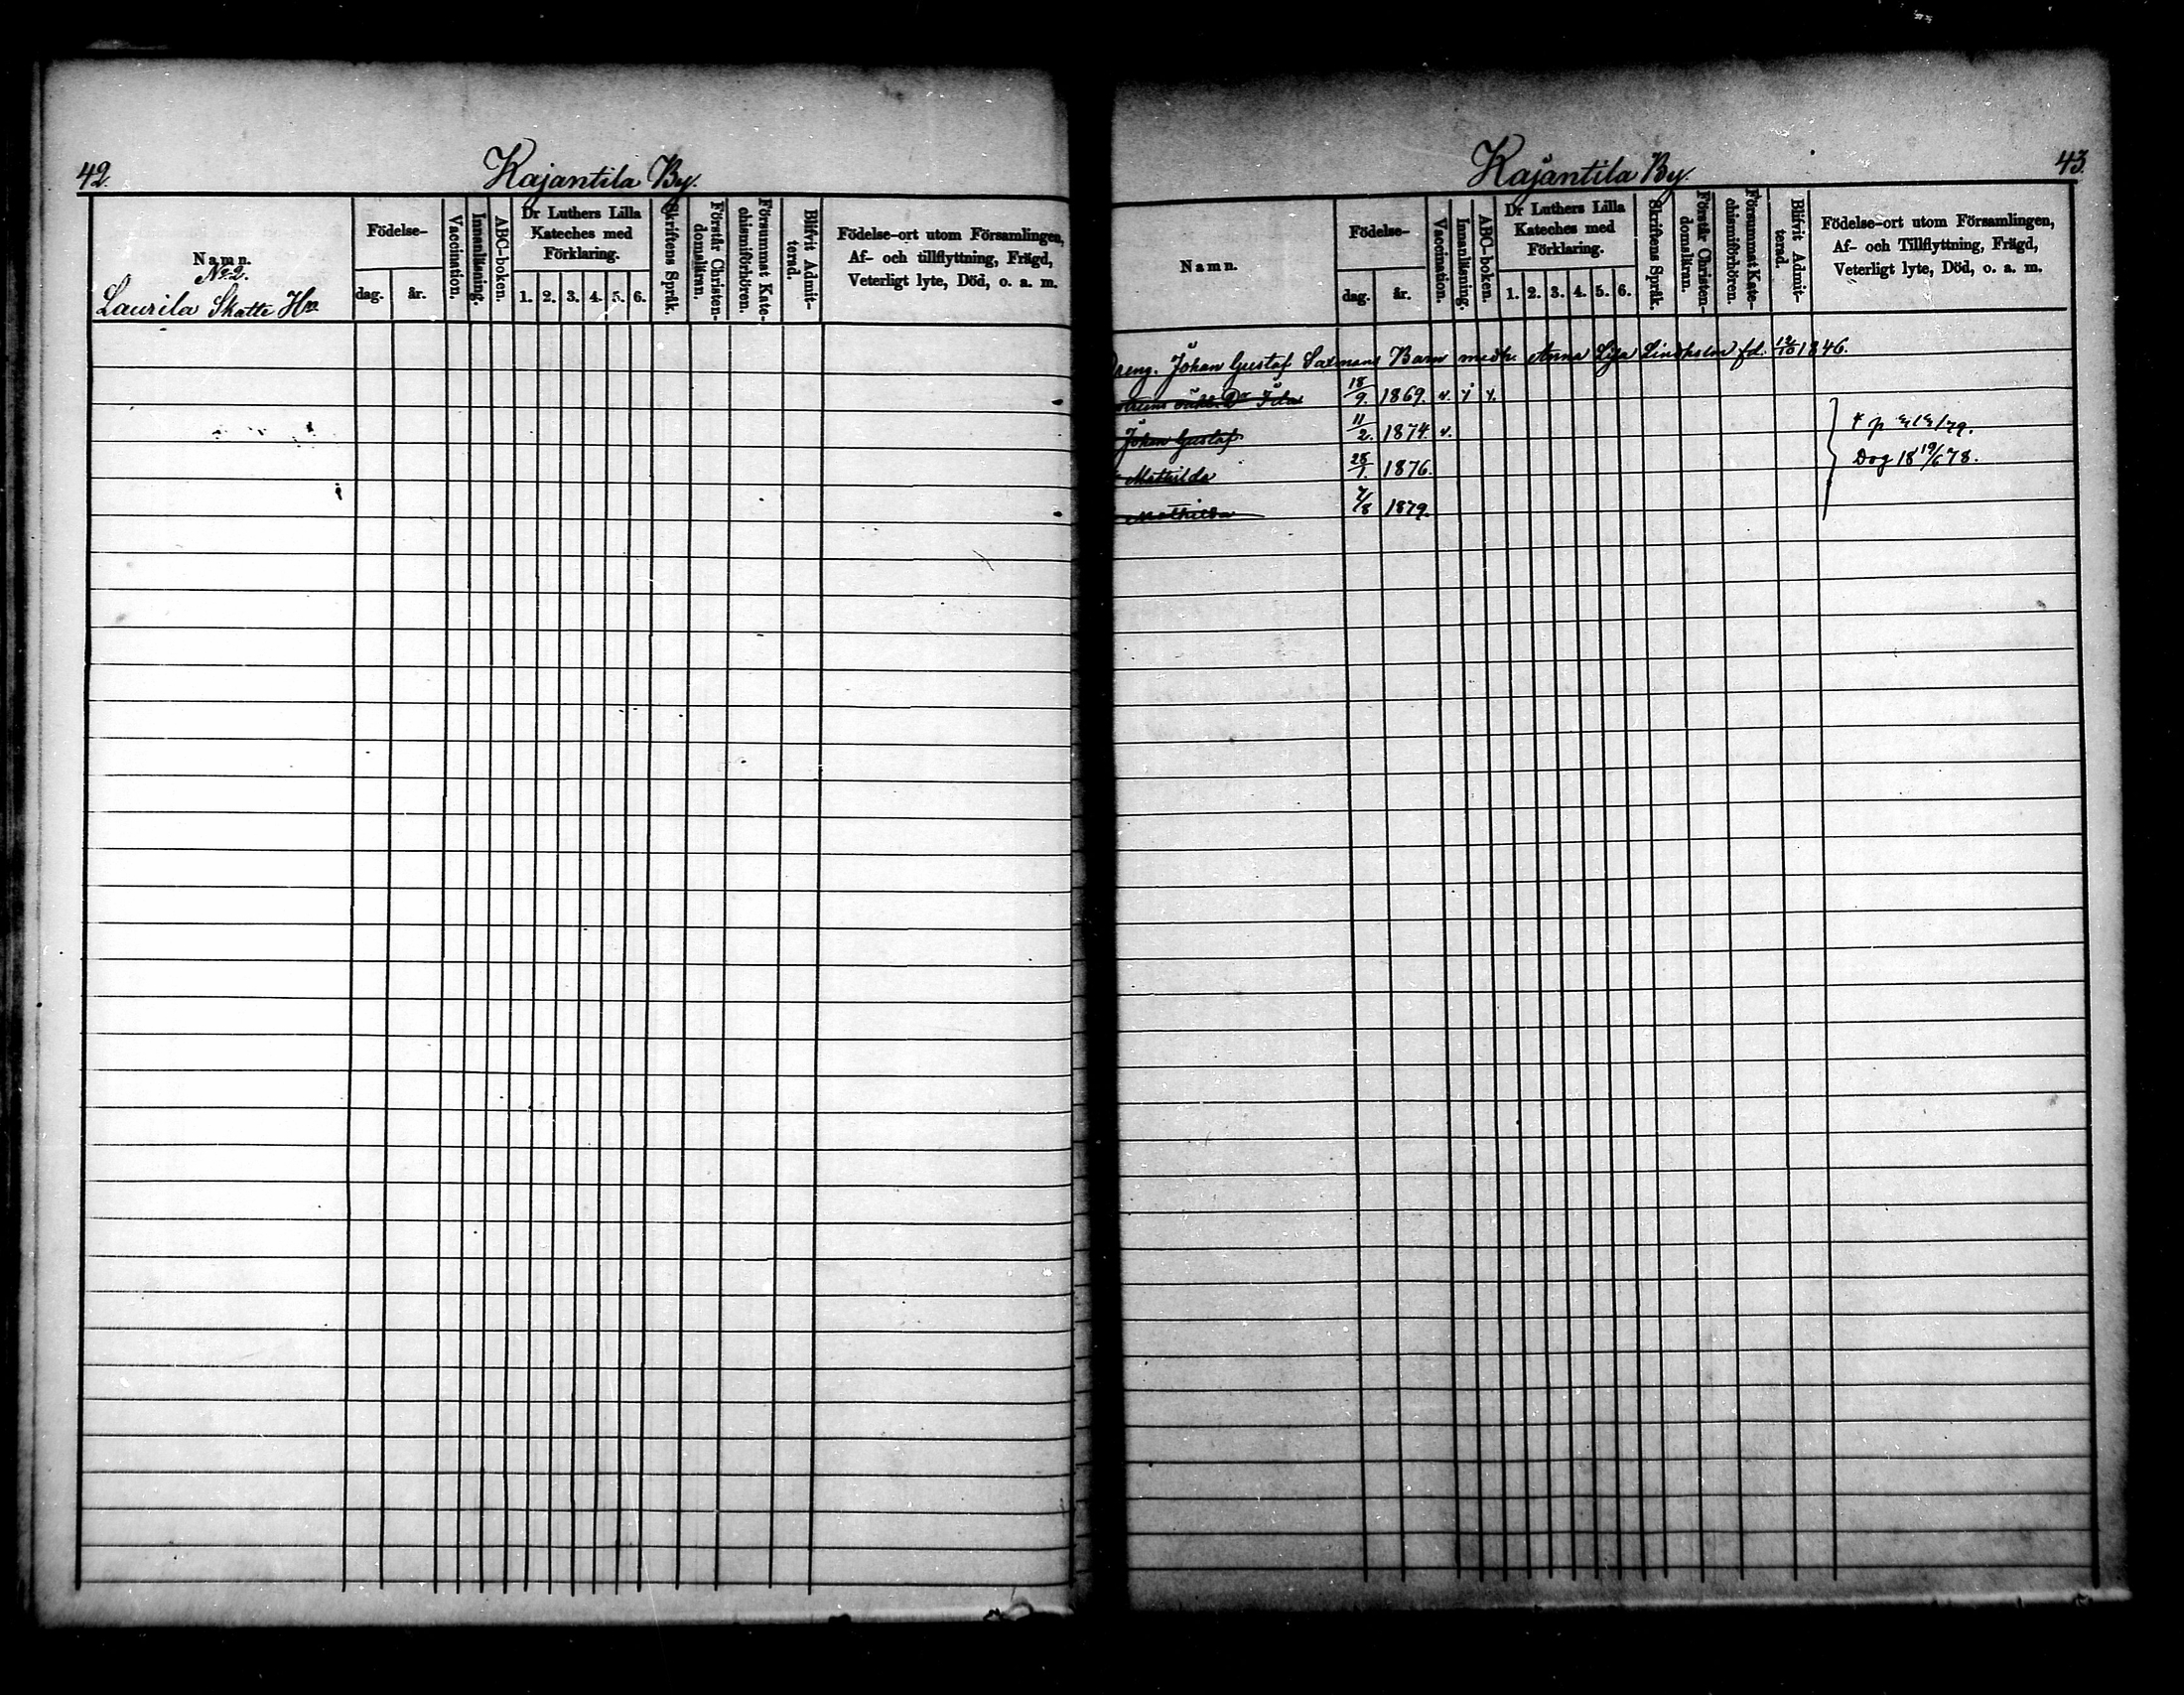 42.
Kajantila By.
Namn.
No 2.
Laurila Skatte Hn
Födelse-
dag.
år.
Vaccination.
Innanläsning.
ABC-boken.
Dr Luthers Lilla
Kateches med
Förklaring.
1. 2. 3. 4. 5. 6.
Skriftens Språk.
Förstår Christen-
domsläran.
Försummat Kate-
chismiförhören.
Blifvit Admit-
terad.
Födelse-ort utom Församlingen,
Af- och tillflyttning, Frägd,
Veterligt lyte, Död, o. a. m.
Kajantila By
43.
Namn.
Födelse-
dag.
år.
Vaccination.
Innanläsning.
ABC-boken.
Dr Luthers Lilla
Kateches med
Förklaring.
1. 2. 3. 4. 5. 6.
Skriftens Språk.
Förstår Christen-
domsläran.
Försummat Kate-
chismiförhören.
Blifvit Admit-
terad.
Födelse-ort utom Församlingen,
Af- och Tillflyttning, Frägd,
Veterligt lyte, Död, o. a. m.
Dreng. Johan Gustaf Saxmans Barn med h. Anna Lisa Lindholm fd. 12/10 1846.
Dr Ida 18/9. 1869. v. y y.
Johan Gustaf 11/2. 1874. v.
Mathilda 28/1. 1876. Dog 18 19/6 78.
Mathilda 7/8 1879.